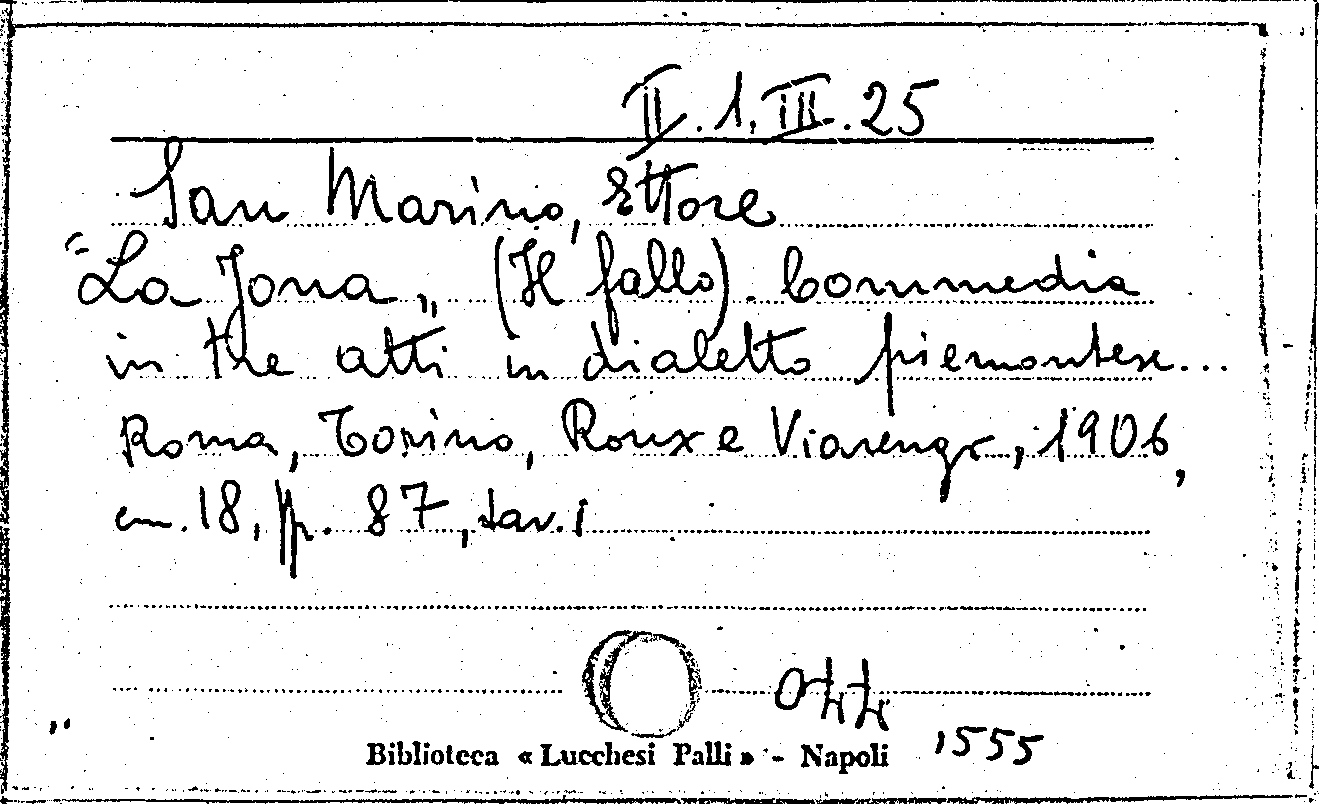 II.1.III.25
San Marino, Ettore
"La Jona„ (Il fallo). Commedia
in tre atti in dialetto piemontese...
Roma, Torino, Roux e Viarengo, 1906,
cm. 18, pp. 87, tav. 1
044
,555
Biblioteca « Lucchesi Palli » - Napoli